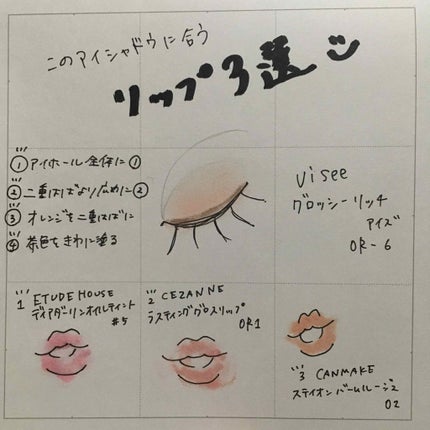 このアイシャドウに合う
リップ3選
① アイホール全体に①
② 二重はばより広めに②
③ オレンジを二重はばに
④ 茶色をきわに塗る
visee
グロッシーリッチ
アイズ
OR-6
1 ETUDE HOUSE
ディアダーリンオイルティント
#5
2 CEZANNE
ラスティンググロスリップ
OR1
3 CANMAKE
ステイオンバームルージュ
02